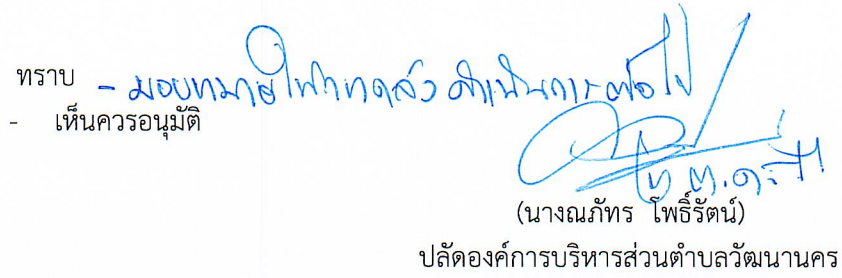 ทราบ - มอบหมายให้กองคลัง ดำเนินการต่อไป
- เห็นควรอนุมัติ
(นางณภัทร โพธิ์รัตน์)
ปลัดองค์การบริหารส่วนตำบลวัฒนานคร